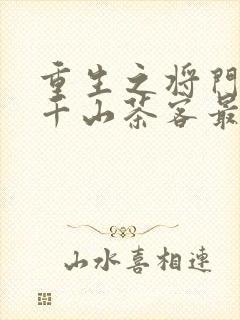 重生之将门
千山茶客最
山水喜相連